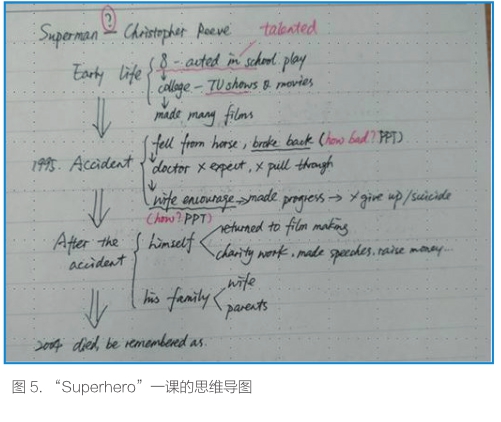 ?
Superman = Christopher Reeve talented
Early life { 8 - acted in school play
college - TV shows & movies
made many films
1995. Accident { fell from horse, broke back (how bad? PPT)
doctor × expect, × pull through
wife encourage → made progress → × give up/suicide
(how? PPT)
After the accident { himself < returned to film making
charity work, made speeches, raise money...
his family < wife
parents
2004 died, be remembered as
图 5. “Superhero”一课的思维导图